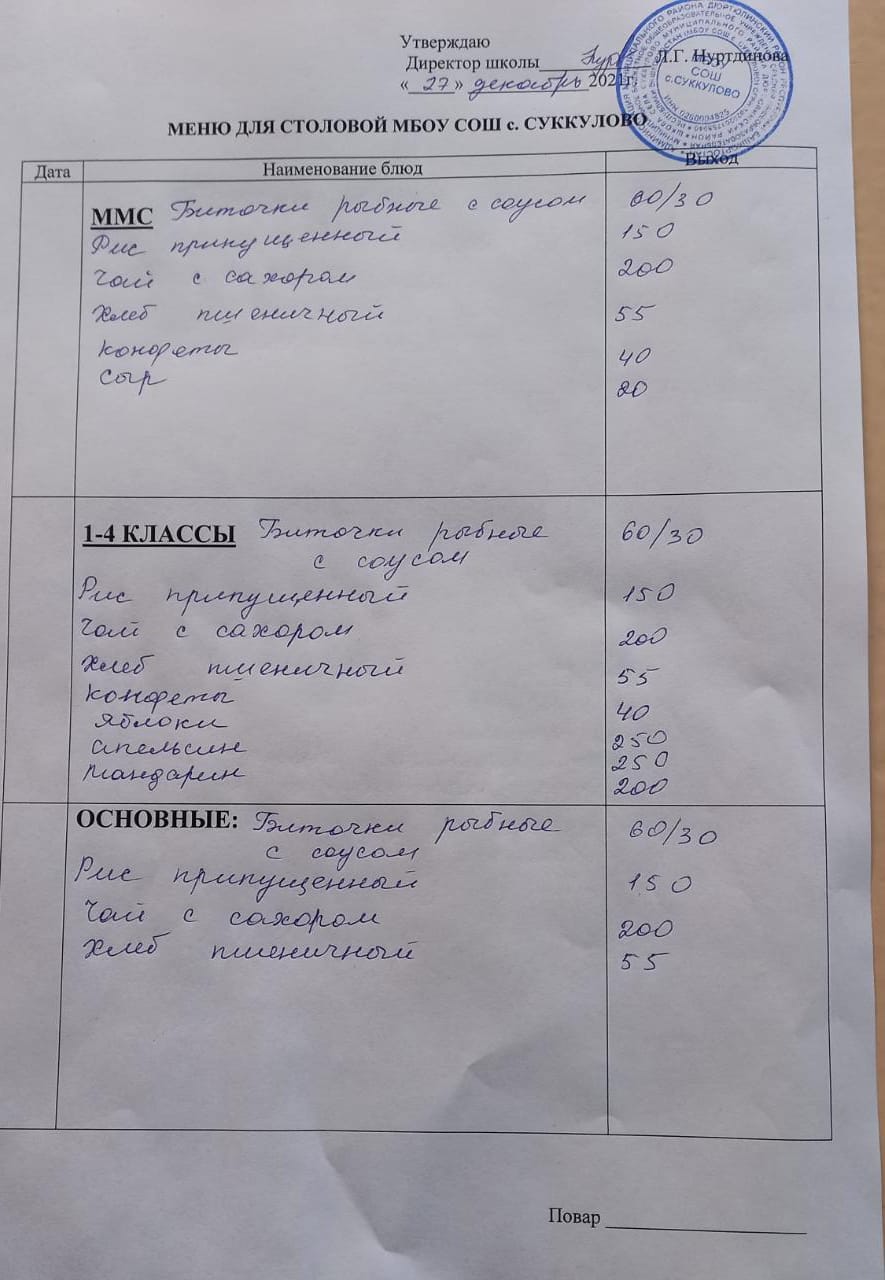 Утверждаю
Директор школы Л.Г. Нуртдинова
« 27 » декабрь 2021г.
СОШ
с.СУККУЛОВО
МЕНЮ ДЛЯ СТОЛОВОЙ МБОУ СОШ с. СУККУЛОВО
Дата Наименование блюд Выход
ММС Биточки рыбные с соусом 60/30
Рис припущенный 150
Чай с сахором 200
Хлеб пшеничный 55
конфеты 40
сыр 20
1-4 КЛАССЫ Биточки рыбные 60/30
с соусом
Рис припущенный 150
Чай с сахором 200
Хлеб пшеничный 55
конфеты 40
яблоки 250
апельсин 250
мандарин 200
ОСНОВНЫЕ: Биточки рыбные 60/30
с соусом
Рис припущенный 150
Чай с сахором 200
Хлеб пшеничный 55
Повар